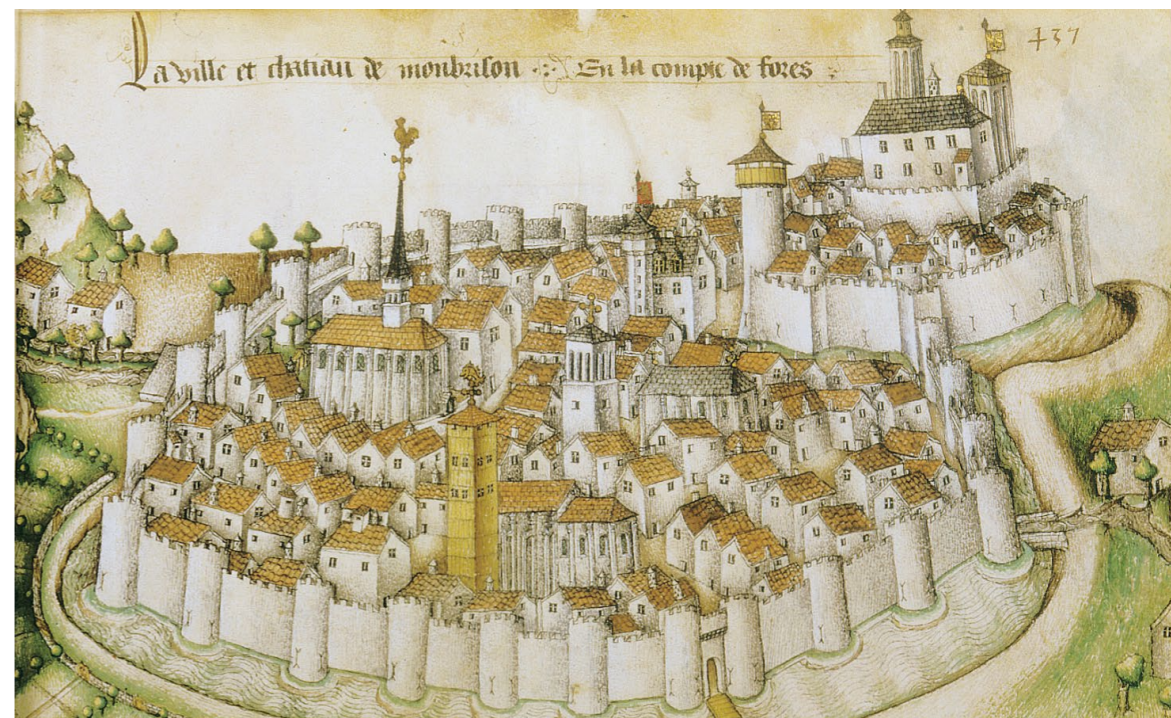 La ville et chatiau de monbrison En la compte de fores
437